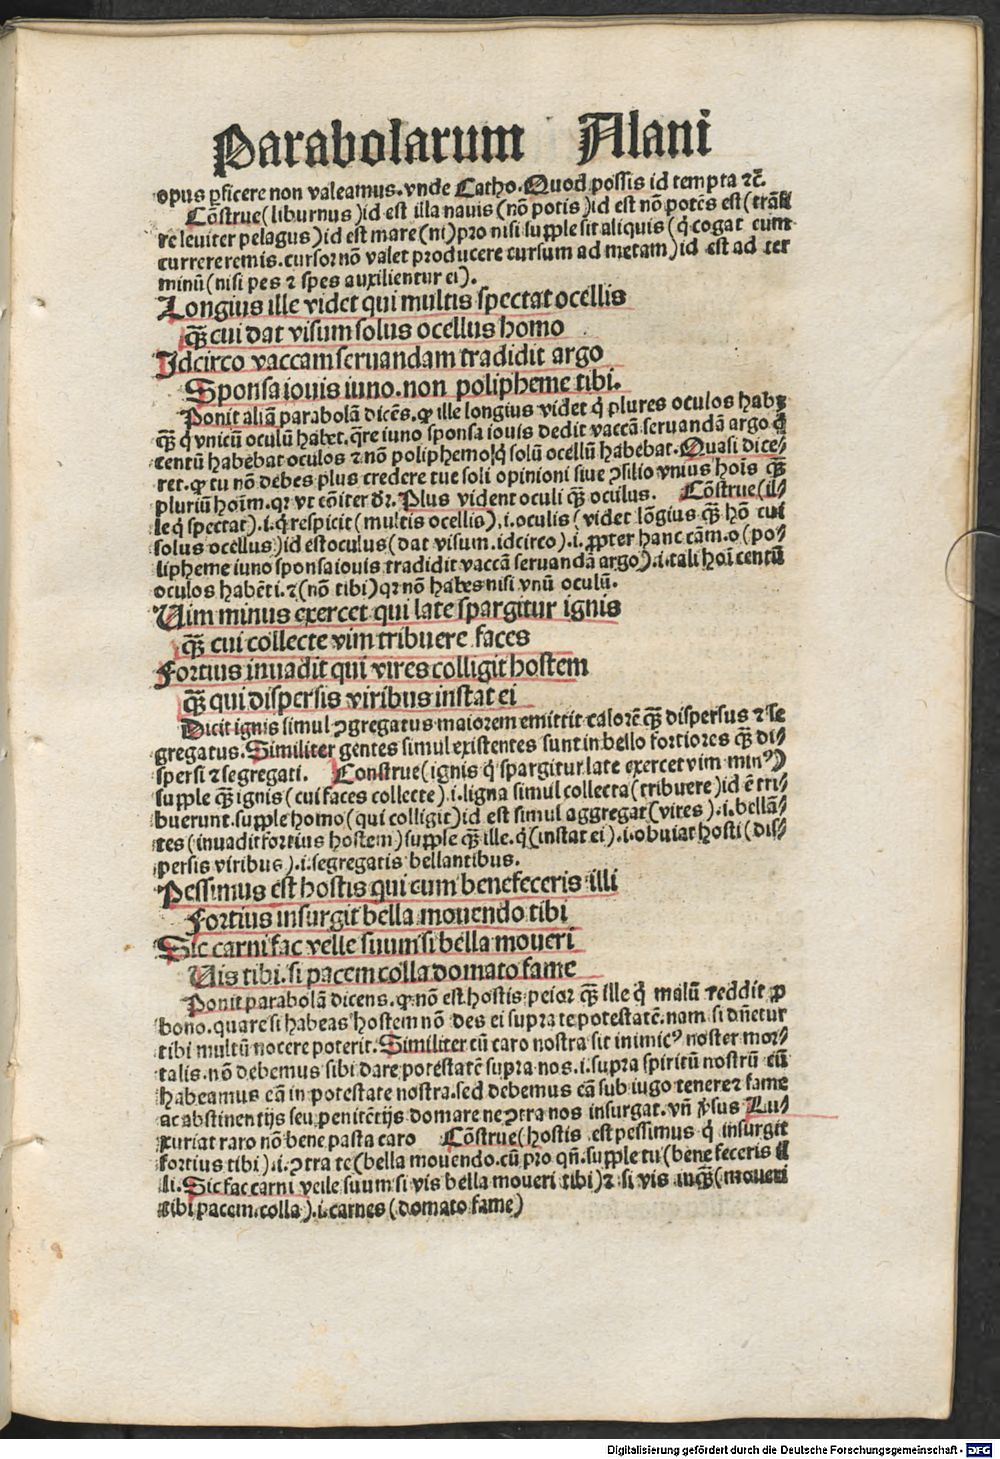 Parabolarum Alani
opus ꝑficere non valeamus. vnde Catho. Quod possis id tempta ⁊c̃.
Cõstrue (liburnus) id est illa nauis (nõ potis) id est nõ potẽs est (trãsi
re leuiter pelagus) id est mare (ni) pro nisi supple sit aliquis (q̇ cogat eum
currere remis. cursor nõ valet producere cursum ad metam) id est ad ter
minũ (nisi pes ⁊ spes auxilientur ei).
Longius ille videt qui multis spectat ocellis
q̃ꝫ cui dat visum solus ocellus homo
Idcirco vaccam seruandam tradidit argo
Sponsa iouis iuno. non polipheme tibi.
Ponit aliã parabolã dicẽs. ꝙ ille longius videt q̇ plures oculos habꝫ
q̃ꝫ q̇ vnicũ oculũ habet. q̃re iuno sponsa iouis dedit vaccã seruandã argo q̇
centũ habebat oculos ⁊ nõ poliphemo q̇ solũ ocellũ habebat. Quasi dice⸗
ret. ꝙ tu nõ debes plus credere tue soli opinioni siue ꝯsilio vnius hoĩs q̃ꝫ
pluriũ hoĩm. qꝛ vt cõiter dr̃. Plus vident oculi q̃ꝫ oculus. Cõstrue (il⸗
le q̇ spectat) .i. q̇ respicit (multis ocellis) .i. oculis (videt lõgius q̃ꝫ hõ cui
solus ocellus) id est oculus (dat visum. idcirco) .i. ꝓpter hanc cãm. o (po⸗
lipheme iuno sponsa iouis tradidit vaccã seruandã argo) .i. tali hoĩ centũ
oculos habẽti. ⁊ (nõ tibi) qꝛ nõ habes nisi vnũ oculũ.
Uim minus exercet qui late spargitur ignis
q̃ꝫ cui collecte vim tribuere faces
Fortius inuadit qui vires colligit hostem
q̃ꝫ qui dispersis viribus instat ei
Dicit ignis simul ꝯgregatus maiorem emittit calorẽ q̃ꝫ dispersus ⁊ se
gregatus. Similiter gentes simul existentes sunt in bello fortiores q̃ꝫ di⸗
spersi ⁊ segregati. Construe (ignis q̇ spargitur late exercet vim minꝰ)
supple q̃ꝫ ignis (cui faces collecte) .i. ligna simul collecta (tribuere) id ẽ tri⸗
buerunt. supple homo (qui colligit) id est simul aggregat (vires) .i. bellã⸗
tes (inuadit fortius hostem) supple q̃ꝫ ille. q̇ (instat ei) .i. obuiat hosti (dis⸗
persis viribus) .i. segregatis bellantibus.
Pessimus est hostis qui cum benefeceris illi
Fortius insurgit bella mouendo tibi
Sic carni fac velle suum si bella moueri
Uis tibi. si pacem colla domato fame
Ponit parabolã dicens. ꝙ nõ est hostis peior q̃ꝫ ille q̇ malũ reddit ꝓ
bono. quare si habeas hostem nõ des ei supra te potestatẽ. nam si dñetur
tibi multũ nocere poterit. Similiter cũ caro nostra sit inimicꝰ noster mor⸗
talis. nõ debemus sibi dare potestatẽ supra nos .i. supra spiritũ nostrũ cũ
habeamus eã in potestate nostra. sed debemus eã sub iugo tenere ⁊ fame
ac abstinentijs seu penitẽtijs domare ne ꝯtra nos insurgat. vñ v̓sus Lu⸗
xuriat raro nõ bene pasta caro Cõstrue (hostis est pessimus q̇ insurgit
fortius tibi) .i. ꝯtra te (bella mouendo. cũ pro qñ. supple tu (bene feceris il
li. Sic fac carni velle suum si vis bella moueri tibi) ⁊ si vis inq̃ꝫ (moueri
tibi pacem. colla) .i. carnes (domato fame)
Digitalisierung gefördert durch die Deutsche Forschungsgemeinschaft - DFG